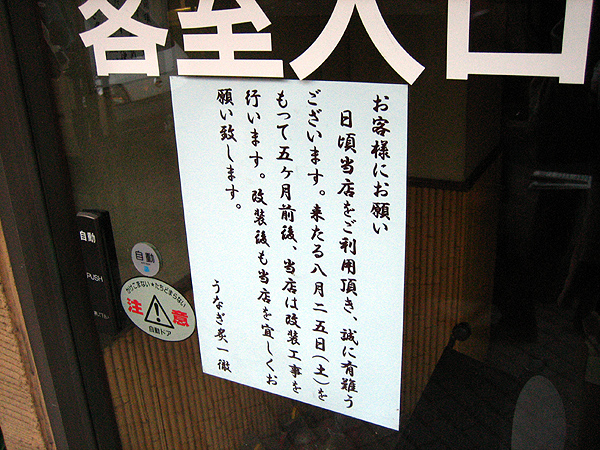 客室入口
お客様にお願い
日頃当店をご利用頂き、誠に有難う
ございます。来たる八月二五日(土)を
もって五ヶ月前後、当店は改装工事を
行います。改装後も当店を宜しくお
願い致します。
うなぎ炙一徹
自動
PUSH
自動
かけこまない・たちどまらない
注意
自動ドア